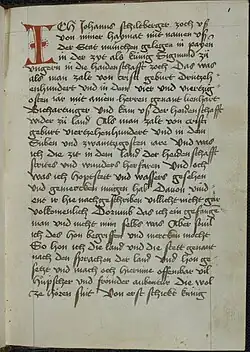 ICh Johanns schiltberger zoch vß
von miner haymat mit namen vß
der Stat münchen gelegen in payren
in der zyt als küng Sigmund zu
ungern in die haidenschafft zoch Das was
als man zalt von cristi geburt drützeh
enhundert und in dem vier und nüntzig
osten Jar mit ainem herren genant lienhart
Richartinger Und bin vß der haidenschafft
wider zu land Als man zalt von cristi
geburt viertzehenhundert und in dem
Siben und zwaintzigosten Jare Und was
ich die zit in dem land der haidenschafft
strites und wunders herfaren Und och
was ich hoptstett und wassers gesehen
und mügen hab Davon vind
ent ir hie nachgeschriben villicht nicht gar
volkomenlich Dorumb das ich ein gefange
man und nicht min selbs was Aber sunil
ich des hon begriffen und mercken mocht
So hon ich die land und die stett genant
nach den sprachen der land Und hon ge
und mach och hierinne offenbar vil
hüpscher und frömder aubentür Die wol
ze hören sint Von erst schickt küng